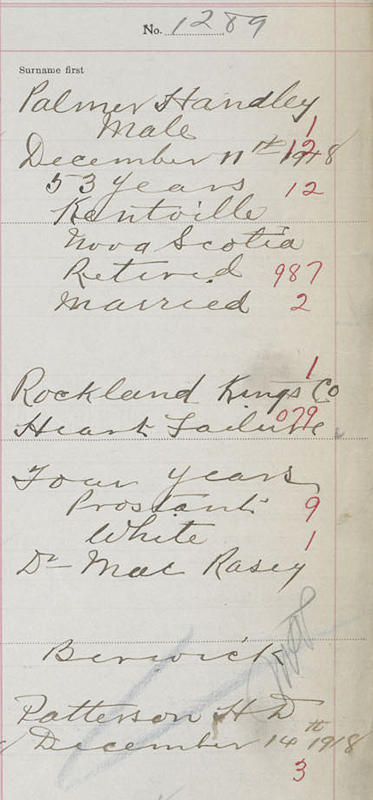 No. 1289
Surname first
Palmer Handley
Male 1
December 11th 1918 12
53 years 12
Kentville
Nova Scotia
Retired 987
Married 2
1
Rockland Kings Co
Heart Failure 079
Four years
Prostant 9
White 1
Dr Mac Rasey
Berwick
Patterson H D
December 14th 1918
3